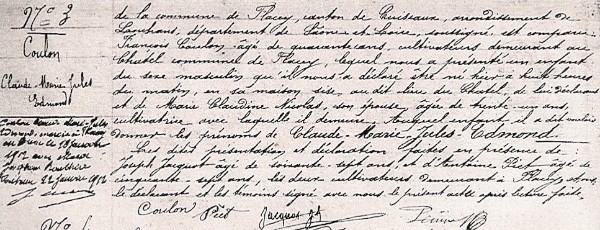 N° 3
Coulon
Claude Marie Jules
Edmond
Coulon Claude Marie Jules
Edmond, marié à Flacey
le 18 Janvier
1912 avec Marie
22 Janvier 1912
de la commune de Flacey, canton de Cuiseaux, arrondissement de
Louhans, département de Saône-et-Loire, soussigné, est comparu
François Coulon, âgé de quarante ans, cultivateur demeurant au
Chatel commune de Flacey, lequel nous a présenté un enfant
du sexe masculin qu'il nous a déclaré être né hier à huit heures
du matin, en sa maison, sise au dit lieu du Chatel, de lui déclarant
et de Marie Claudine Nicolas, son épouse, âgée de trente-un ans,
cultivatrice avec laquelle il demeure. Auquel enfant il a dit vouloir
donner les prénoms de Claude-Marie-Jules-Edmond.
Les dites présentation et déclaration faites en présence de :
Joseph Jacquot âgé de soixante sept ans, et d'Antoine Piet âgé de
cinquante-sept ans, les deux cultivateurs demeurant à Flacey, et ont
le déclarant et les témoins signé avec nous le présent acte après lecture faite.
Coulon Piet Jacquot